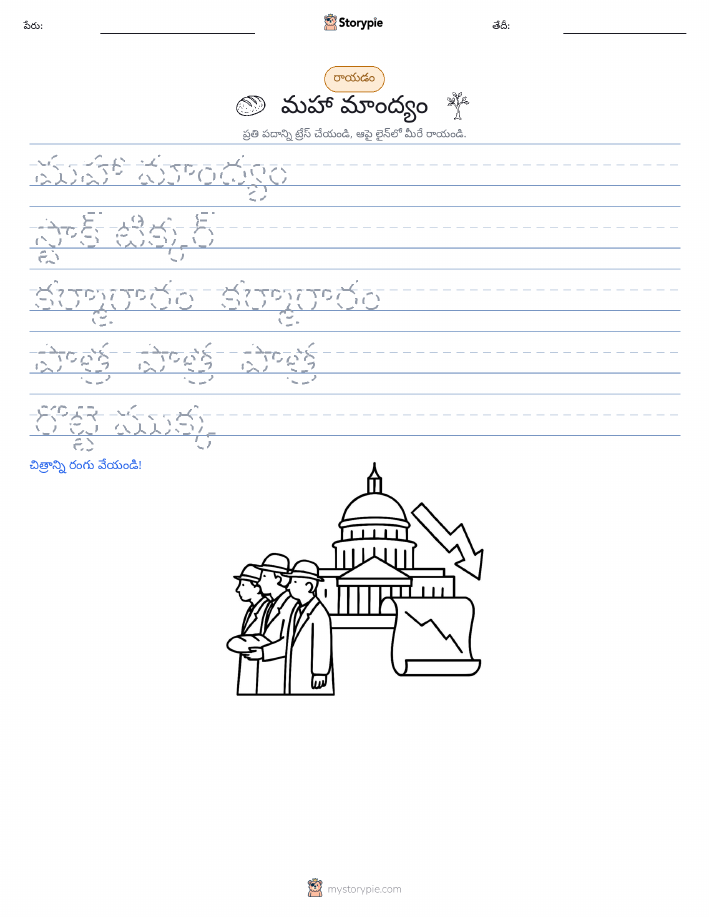 పేరు:
Storypie
తేదీ:
రాయడం
మహా మాంద్యం
ప్రతి పదాన్ని ట్రేస్ చేయండి, ఆపై లైన్‌లో మీరే రాయండి.
మహా మాంద్యం
స్టాక్ టిక్కర్
కర్మాగారం కర్మాగారం
పాత్ర పాత్ర పాత్ర
రొట్టె ముక్క
చిత్రాన్ని రంగు వేయండి!
mystorypie.com